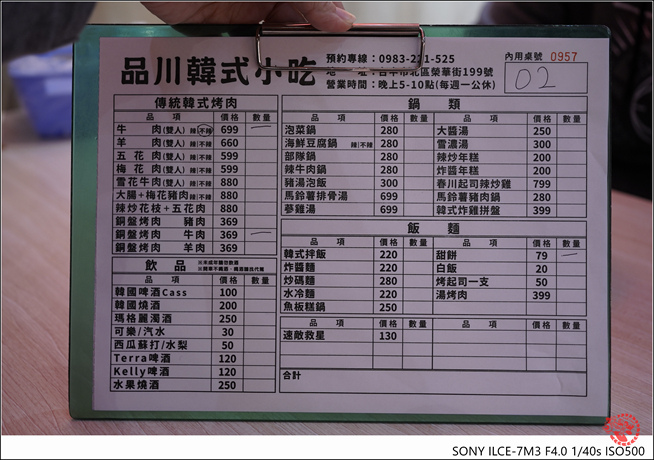 品川韓式小吃
預約專線：0983-221-525
地　　址：台中市北區榮華街199號
營業時間：晚上5-10點(每週一公休)
內用桌號 0957
02
傳統韓式烤肉
品項 價格 數量
牛肉(雙人) 辣|不辣 699 一
羊肉(雙人) 辣|不辣 660
五花肉(雙人) 辣|不辣 599
梅花肉(雙人) 辣|不辣 599
雪花牛肉(雙人) 辣|不辣 880
大腸+梅花豬肉 辣|不辣 880
辣炒花枝+五花肉 880
銅盤烤肉 豬肉 369
銅盤烤肉 牛肉 369 一
銅盤烤肉 羊肉 369
飲品
品項 價格 數量
韓國啤酒Cass 100
韓國燒酒 200
瑪格麗濁酒 250
可樂/汽水 30
西瓜蘇打/水梨 50
Terra啤酒 120
Kelly啤酒 120
水果燒酒 250
鍋類
品項 價格 數量 品項 價格 數量
泡菜鍋 280 大醬湯 250
海鮮豆腐鍋 辣|不辣 280 雪濃湯 300
部隊鍋 280 辣炒年糕 200
辣牛肉鍋 280 炸醬年糕 200
豬湯泡飯 300 春川起司辣炒雞 799
馬鈴薯排骨湯 699 馬鈴薯豬肉鍋 280
蔘雞湯 699 韓式炸雞拼盤 399
飯麵
品項 價格 數量 品項 價格 數量
韓式拌飯 220 甜餅 79 一
炸醬麵 220 白飯 20
炒碼麵 280 烤起司一支 50
水冷麵 220 湯烤肉 399
魚板糕鍋 250
品項 價格 數量 品項 價格 數量
速敵救星 130
合計
SONY ILCE-7M3 F4.0 1/40s ISO500